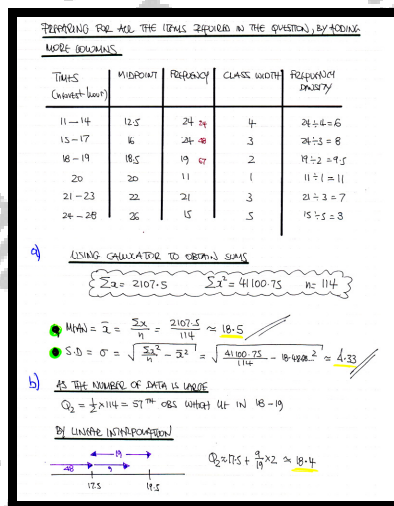 PREPARING FOR ALL THE ITEMS REQUIRED IN THE QUESTION, BY ADDING
MORE COLUMNS
TIMES (nearest hour) MIDPOINT FREQUENCY CLASS WIDTH FREQUENCY DENSITY
11-14 12.5 24 24 4 24÷4=6
15-17 16 24 48 3 24÷3=8
18-19 18.5 19 67 2 19÷2=9.5
20 20 11 1 11÷1=11
21-23 22 21 3 21÷3=7
24-28 26 15 5 15÷5=3
a) USING CALCULATOR TO OBTAIN SUMS
Σx = 2107.5 Σx² = 41100.75 n= 114
MEAN = x̄ = Σx/n = 2107.5/114 ≈ 18.5
S.D = σ = √(Σx²/n - x̄²) = √(41100.75/114 - 18.4868...²) ≈ 4.33
b) AS THE NUMBER OF DATA IS LARGE
Q₂ = ½×114 = 57TH OBS WHICH LIE IN 18-19
BY LINEAR INTERPOLATION
19
48 9
17.5 19.5
Q₂ ≈ 17.5 + 9/19 ×2 ≈ 18.4